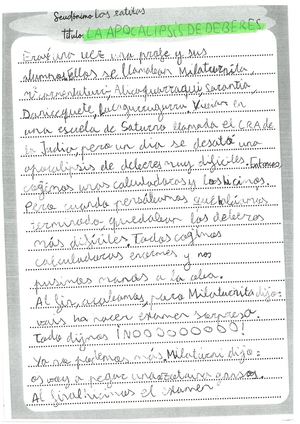 Seudónimo: Las ratitas
Título: LA APOCALIPSIS DE DEBERES
Erase una vez una profe y sus
alumnos. Ellos se llamaban Milaturnita,
Alcaparraqui, Sarantia,
Vivian en
una escuela de Saturno llamada el CRA de
la Judia, pero un dia se desató una
apocalipsis de deberes muy dificiles. Entonces
cogimos unas calculadoras y los hicimos.
Pero cuando pensábamos que habíamos
terminado quedaban los deberes
más difíciles. Todos cogimos
calculadoras enormes y nos
pusimos manos a la obra.
Al fin, acabamos, pero Milaturnita dijo:
vais ha hacer examen sorpresa.
Todo dijmos ¡NOOOOOOOO!
Ya no podemos más. Milaturni dijo:
os voy a pegar una
Al final hicimos el examen